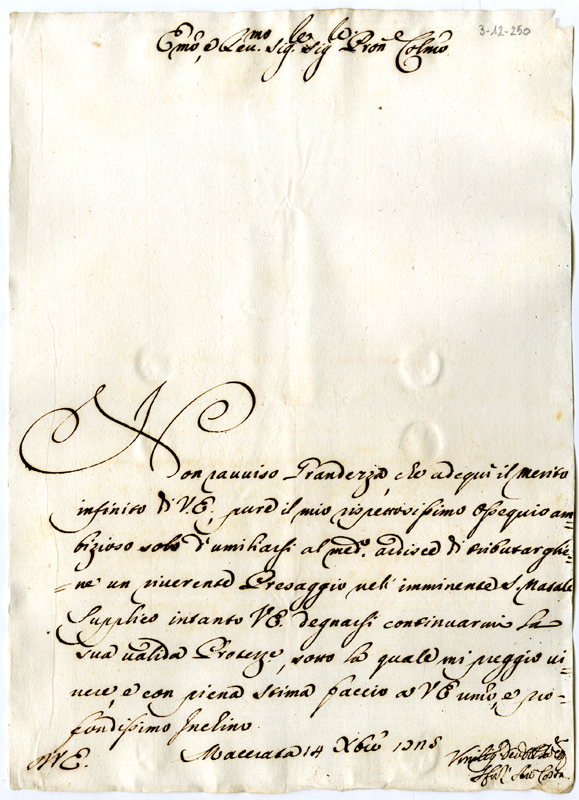 3-12-250
Emo, e Rev.mo Sig.re Sig.re Pron.e Colmo
Non ravviso Grandezza, che adequi il merito
infinito di V.E., pure il mio rispettosissimo Ossequio am=
bizioso solo d'umiliarsi al med.o ardisce di tributarglie=
=ne un riverente Presaggio nell'imminente S. Natale
Supplico intanto V.E. degnarsi continuarmi la
sua valida Protezze, sotto la quale mi preggio vi=
vere, e con piena stima faccio a V.E. umo, e pro=
fondissimo Inchino.
Macerata 14 Xbre
V.E.